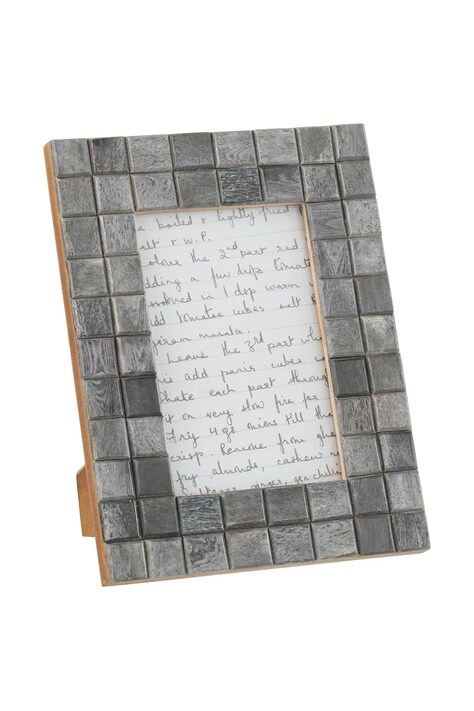 e boiled & lightly fried
alt & W.P.
olour the 2nd part red
dding a few drips tomato
in 1 dsp warm
dd tomatoe cubes salt
garam masala.
Leave the 3rd part wh
is add panir cubes
Shake each part throug
t on very slow fire for
Fry 4 gs onions till the
crisp. Remove from ghe
fry almonds, cashew n
ginger,